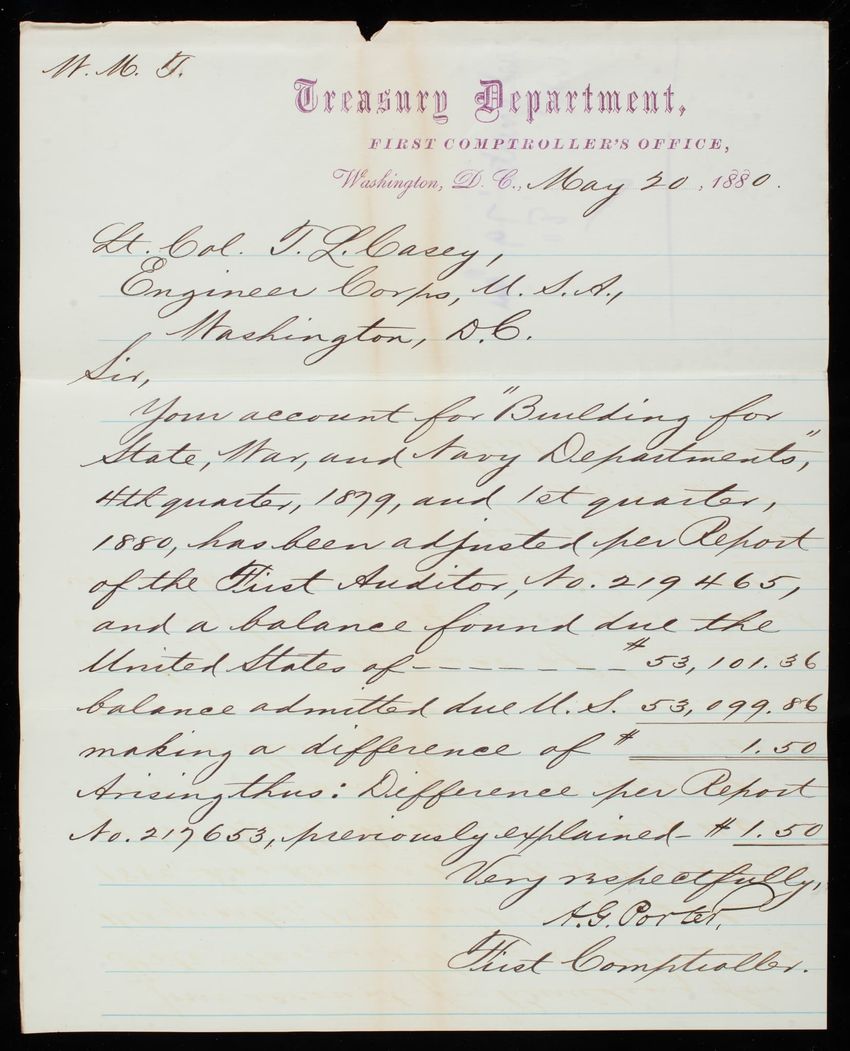 W. M. T.
Treasury Department,
FIRST COMPTROLLER'S OFFICE,
Washington, D. C., May 20, 1880.
Lt. Col. T. L. Casey,
Engineer Corps, U. S. A.,
Washington, D.C.
Sir,
Your account for "Building for
State, War, and Navy Departments",
4th quarter, 1879, and 1st quarter,
1880, has been adjusted per Report
of the First Auditor, No. 219465,
and a balance found due the
United States of - - - - - - - $53,101.36
balance admitted due U. S. 53,099.86
making a difference of $ 1.50
Arising thus: Difference per Report
No. 217653, previously explained - $1.50
Very respectfully,
A. G. Porter,
First Comptroller.